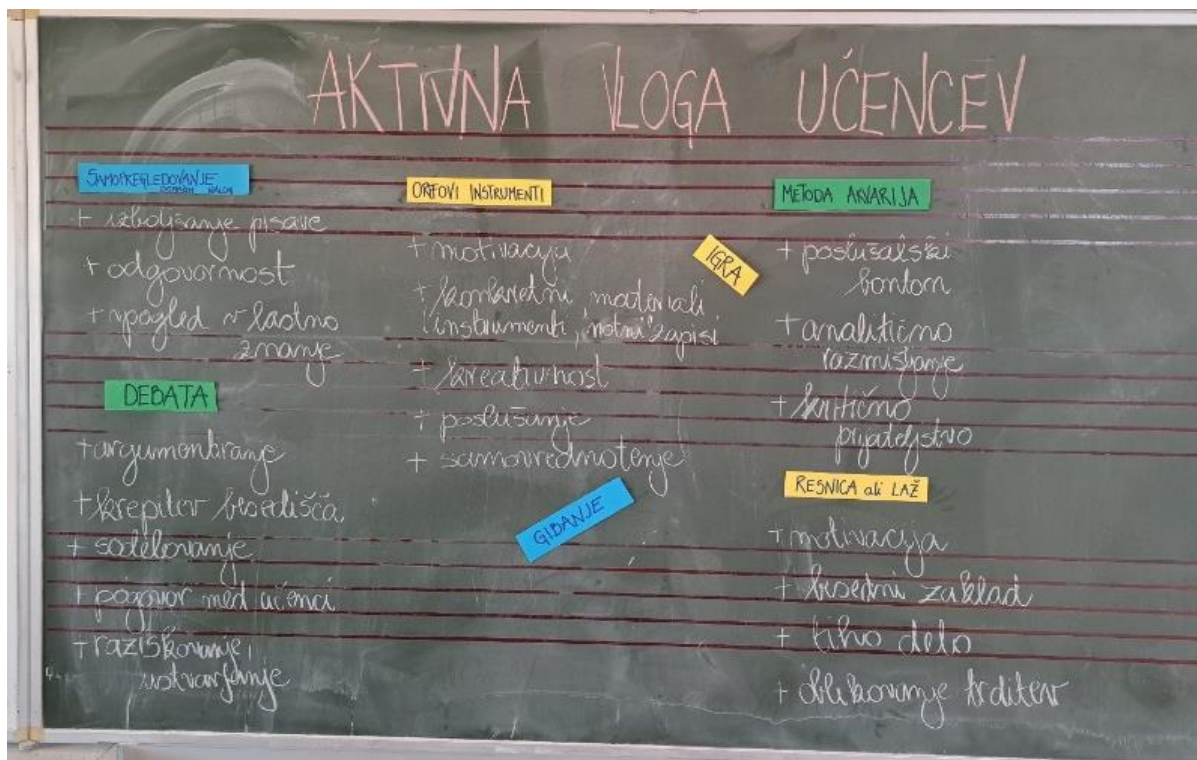 AKTIVNA VLOGA UČENCEV
SAMOPREGLEDOVANJE
+ izboljšanje pisave
+ odgovornost
+ vpogled v lastno
znanje
DEBATA
+ argumentiranje
+ krepitev besedišča
+ sodelovanje
+ pogovor med učenci
+ raziskovanje,
ustvarjanje
ORFOVI INSTRUMENTI
+ motivacija
+ konkretni materiali
instrumenti, notni zapisi
+ kreativnost
+ poslušanje
+ samovrednotenje
GIBANJE
IGRA
METODA AKVARIJA
+ poslušalski
bonton
+ analitično
razmišljanje
+ kritično
prijateljstvo
RESNICA ali LAŽ
+ motivacija
+ besedni zaklad
+ tiho delo
+ oblikovanje trditev